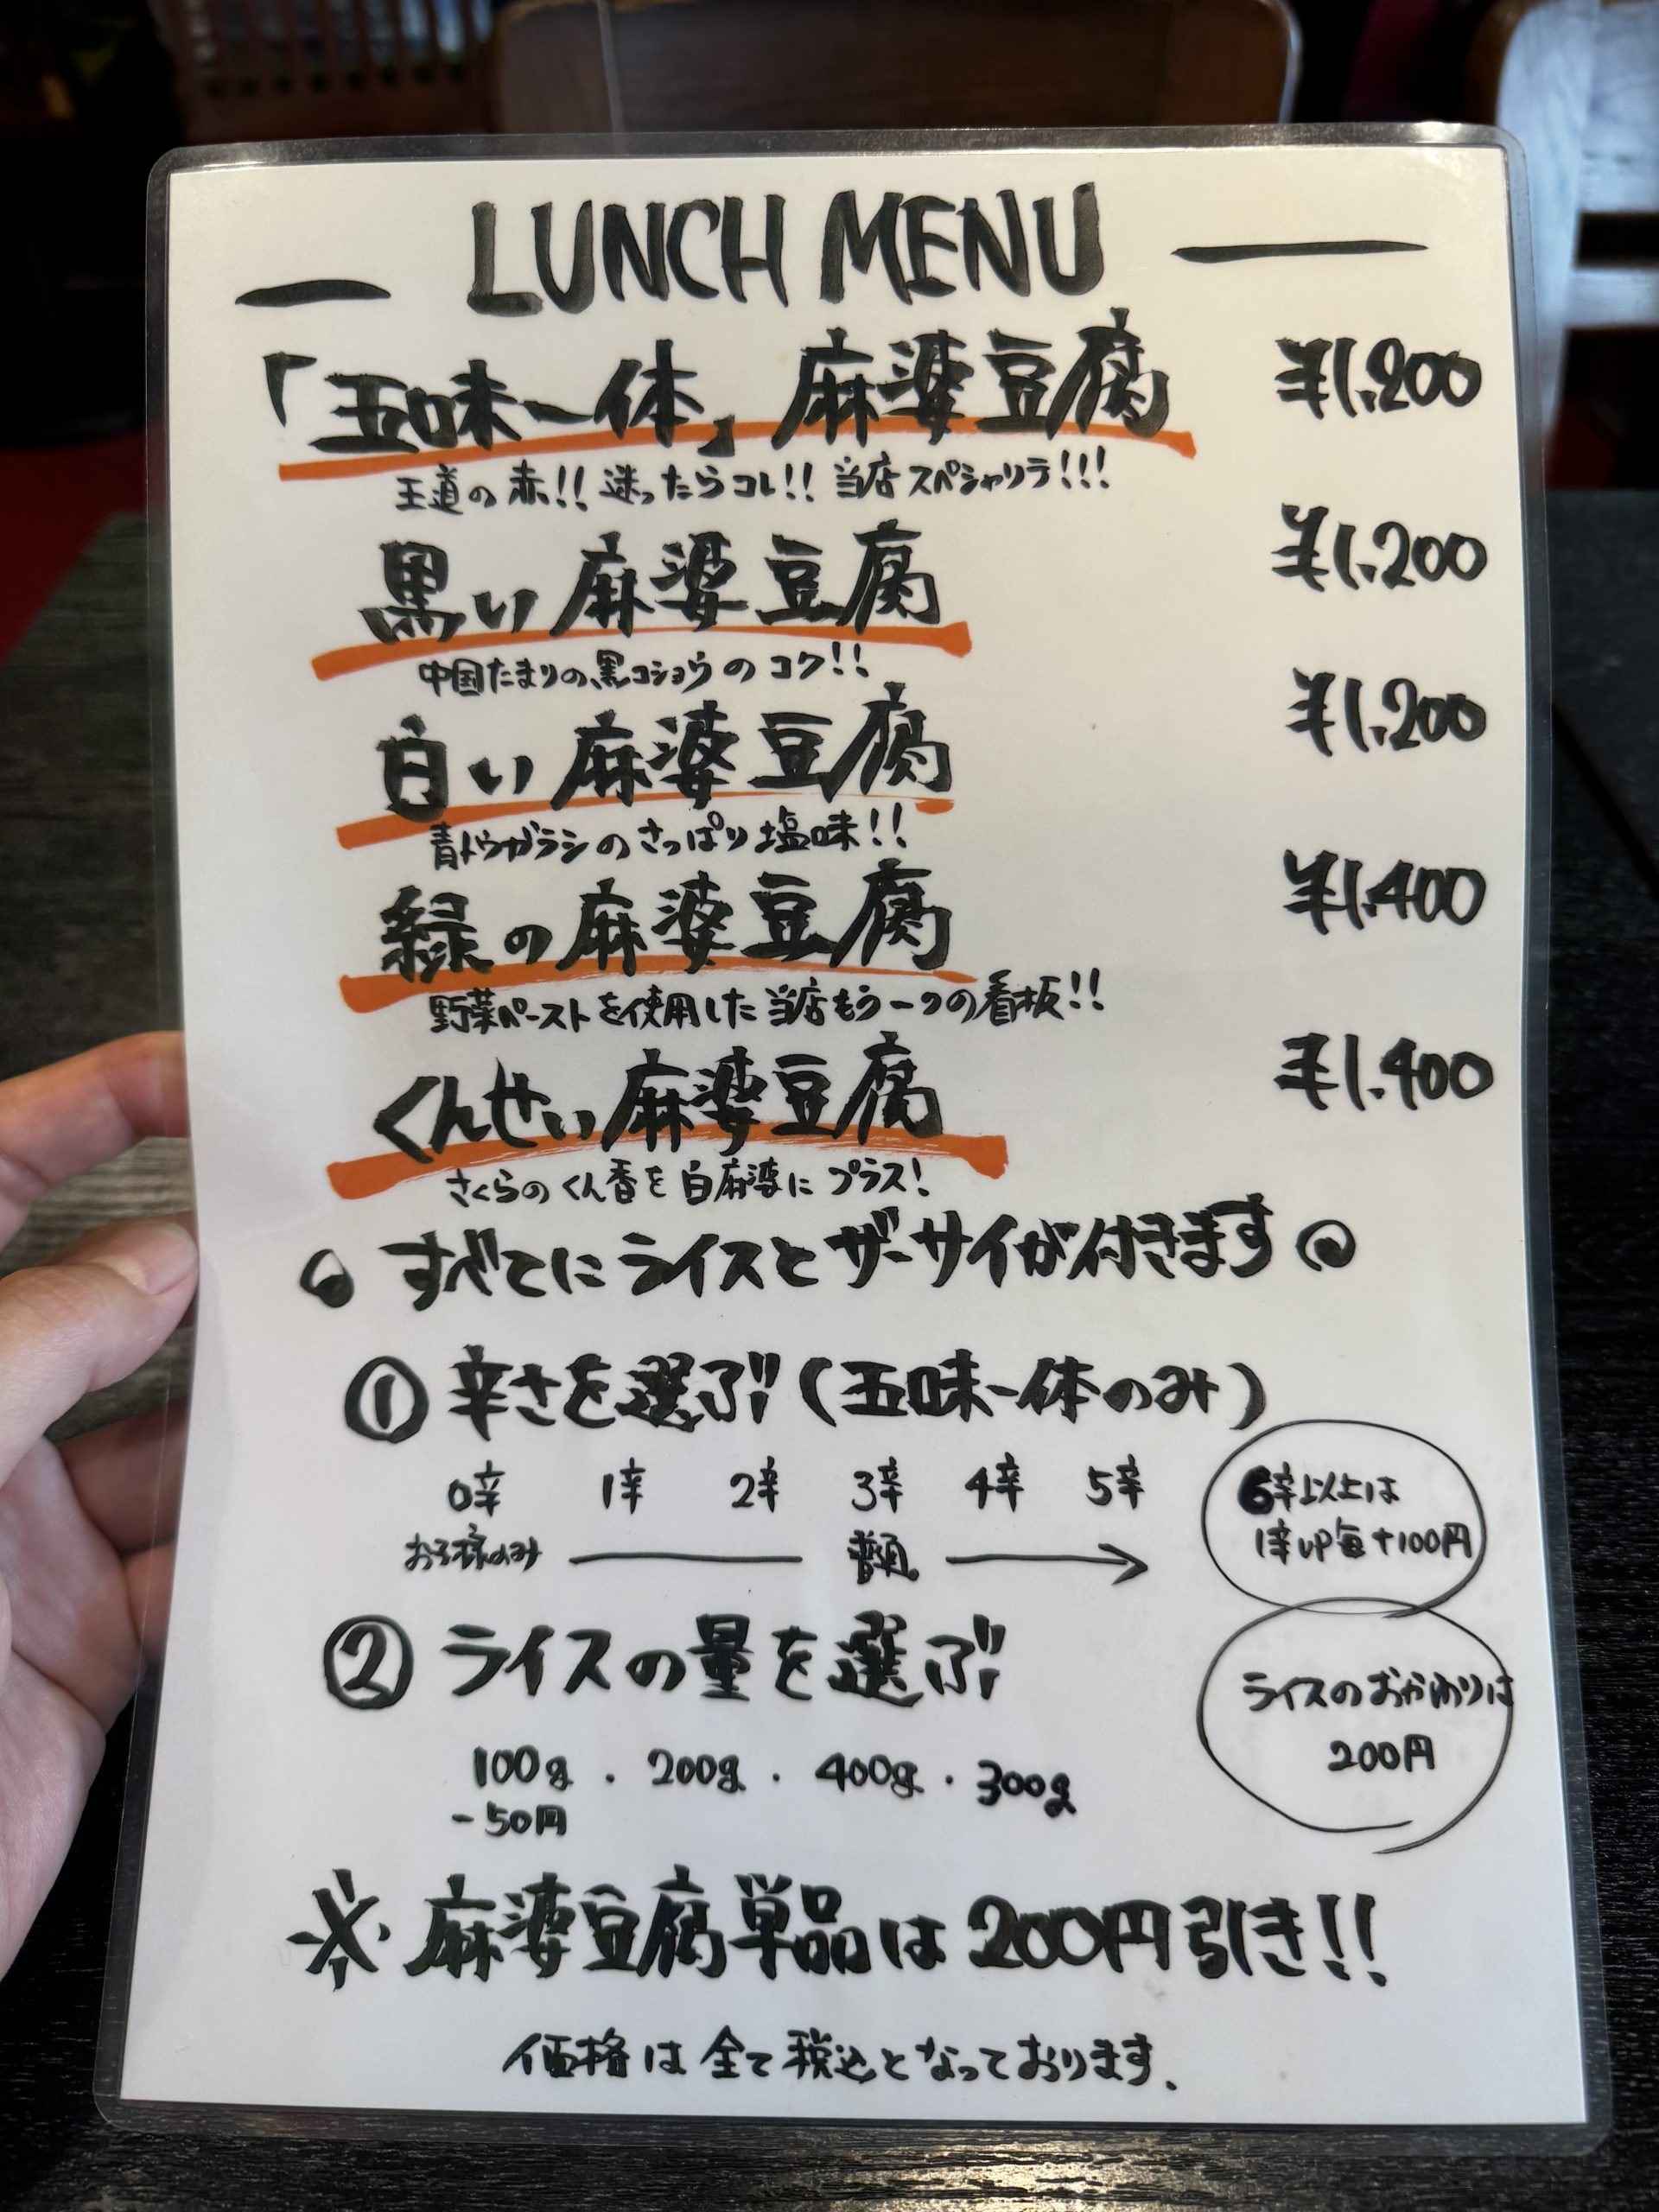 LUNCH MENU
「五味一体」麻婆豆腐 ¥1,200
王道の赤!! 迷ったらコレ!! 当店スペシャリテ!!!
黒い麻婆豆腐 ¥1,200
中国たまりの、黒コショウのコク!!
白い麻婆豆腐 ¥1,200
青トウガラシのさっぱり塩味!!
緑の麻婆豆腐 ¥1,400
野菜ペーストを使用した当店もう一つの看板!!
くんせい麻婆豆腐 ¥1,400
さくらのくん香を白麻婆にプラス!
すべてにライスとザーサイが付きます
① 辛さを選ぶ!(五味一体のみ)
0辛 1辛 2辛 3辛 4辛 5辛
お子様のみ 普通
6辛以上は
1辛up毎+100円
② ライスの量を選ぶ!
100g・200g・400g・300g
-50円
ライスのおかわりは
200円
※麻婆豆腐単品は200円引き!!
価格は全て税込となっております。